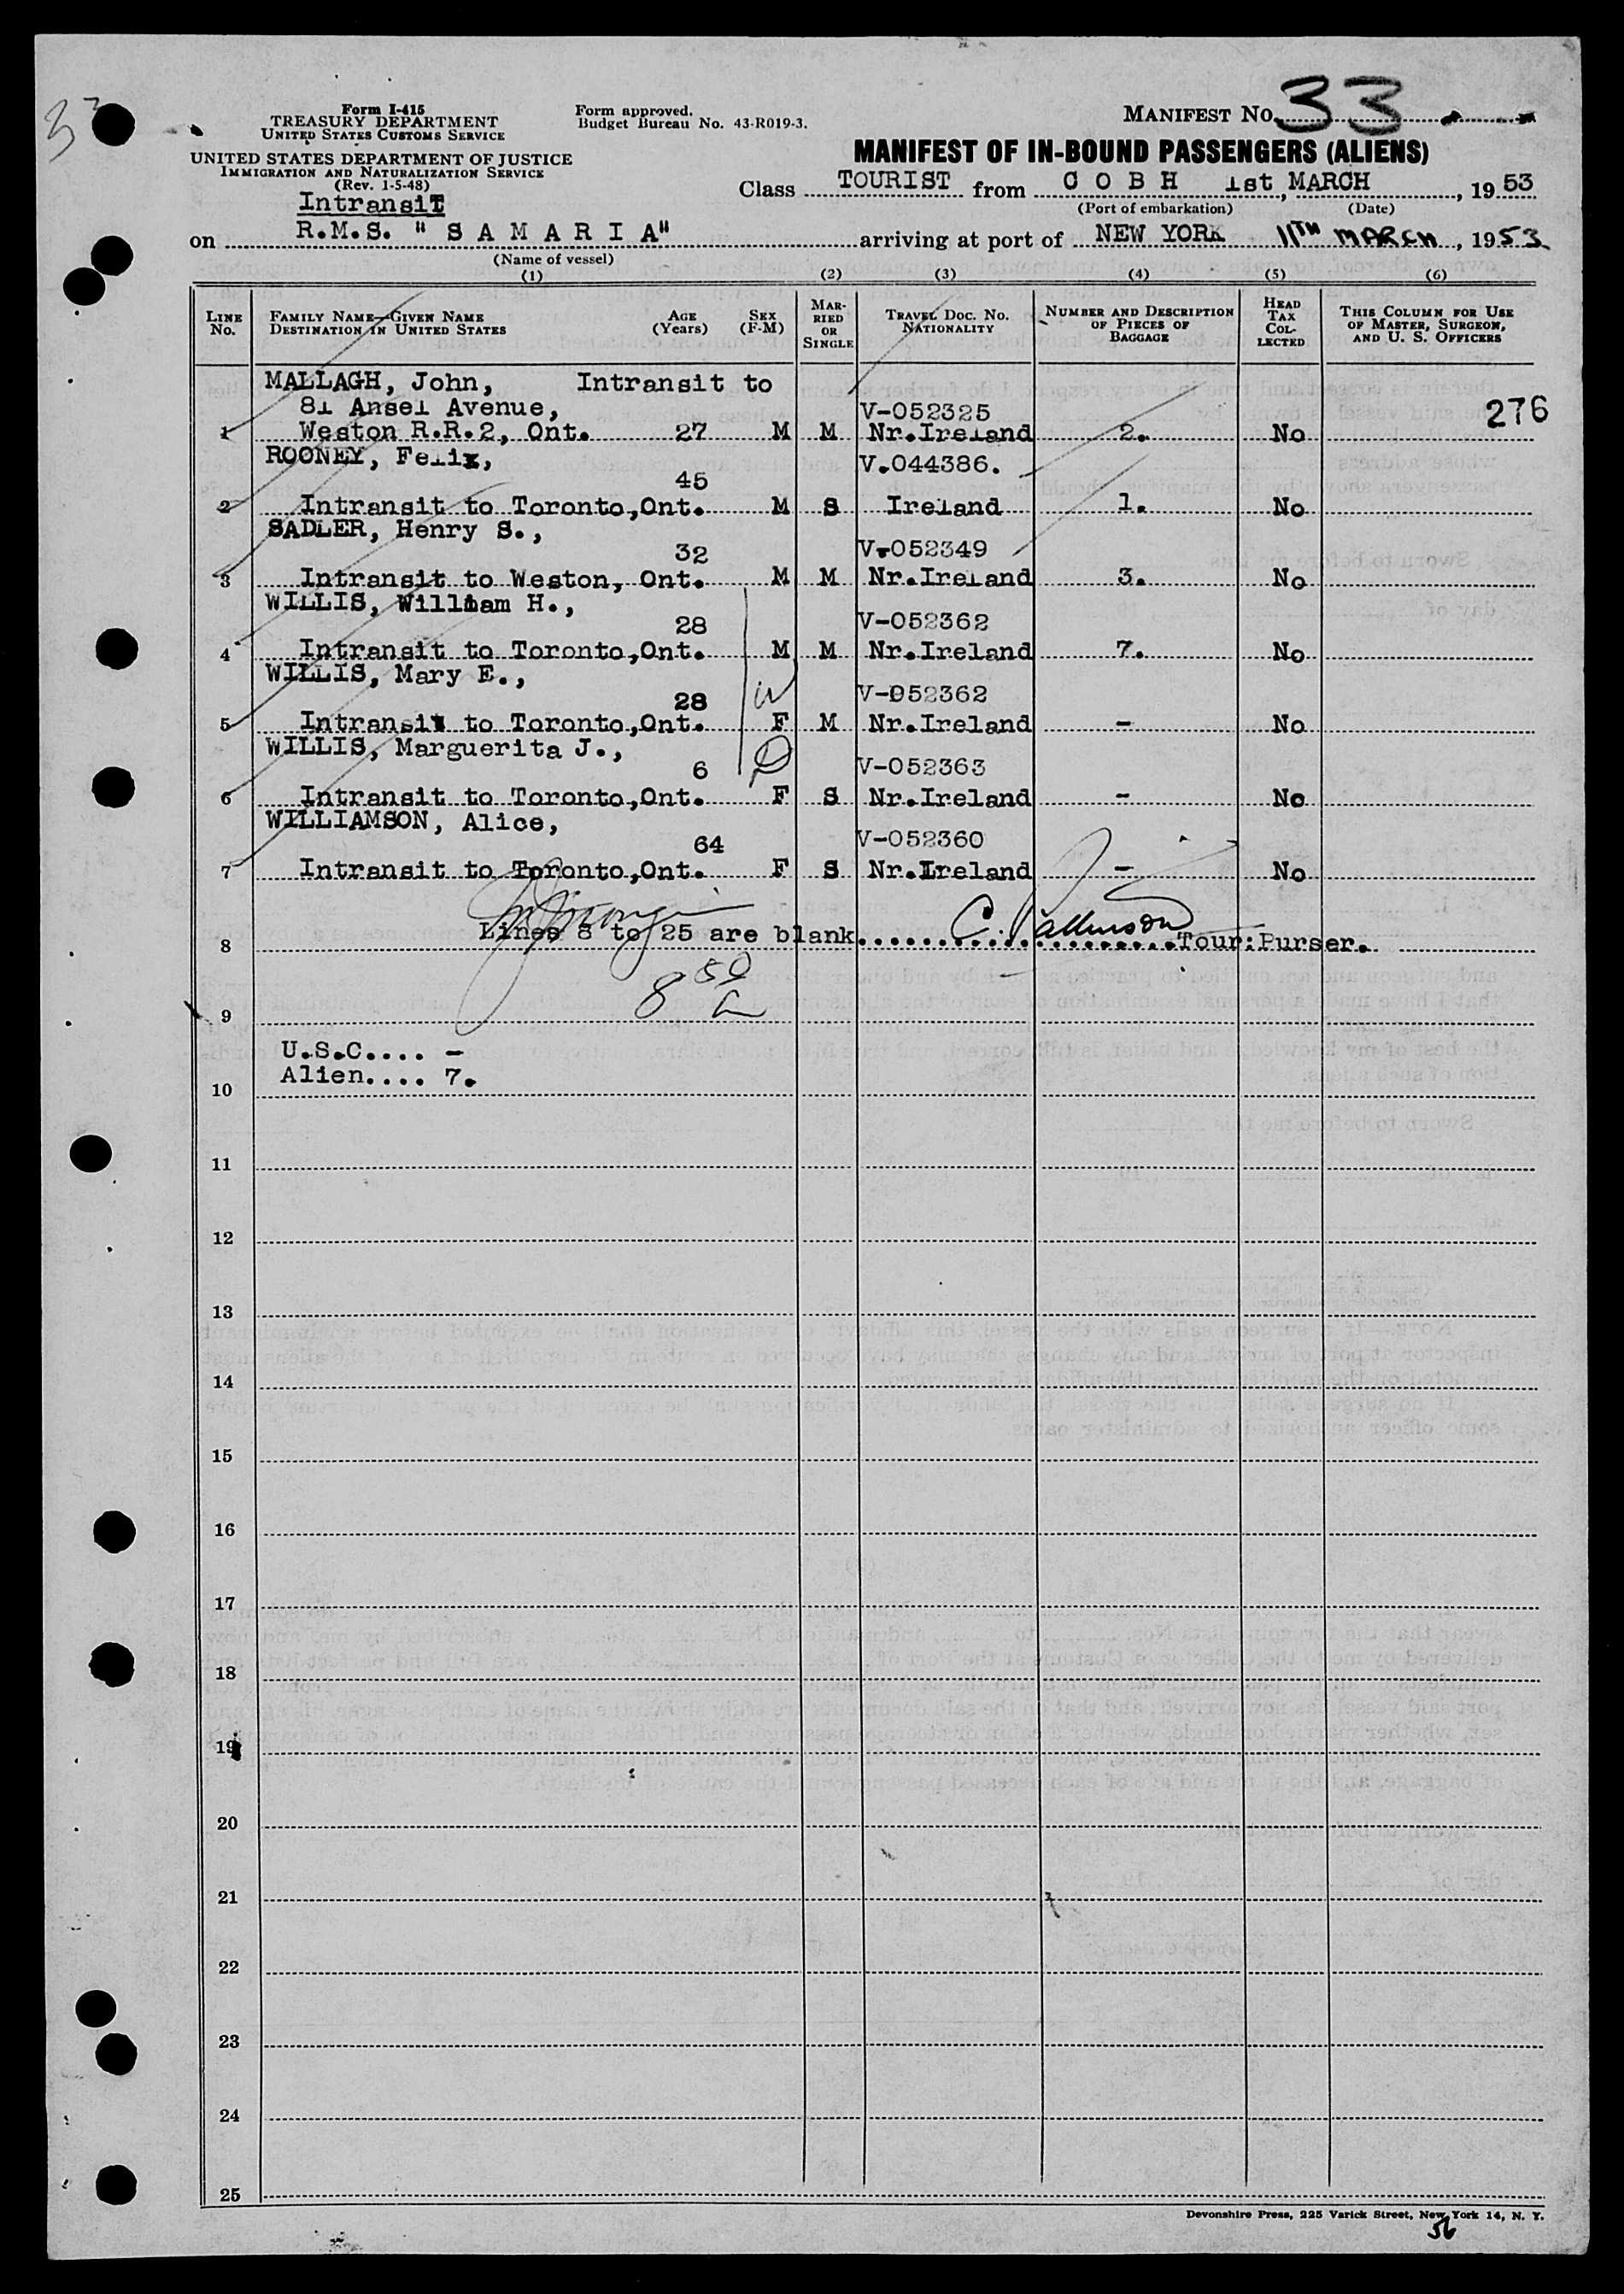 33
Form I-415
TREASURY DEPARTMENT
UNITED STATES CUSTOMS SERVICE
Form approved.
Budget Bureau No. 43-R019-3.
MANIFEST NO. 33
UNITED STATES DEPARTMENT OF JUSTICE
IMMIGRATION AND NATURALIZATION SERVICE
(Rev. 1-5-48)
MANIFEST OF IN-BOUND PASSENGERS (ALIENS)
Class TOURIST from C O B H 1st, MARCH, 1953
(Port of embarkation) (Date)
Intransit
on R.M.S. "S A M A R I A" arriving at port of NEW YORK 11TH MARCH, 1953
(Name of vessel)
(1) (2) (3) (4) (5) (6)
LINE NO. FAMILY NAME—GIVEN NAME DESTINATION IN UNITED STATES AGE (Years) SEX (F-M) MARRIED OR SINGLE TRAVEL DOC. NO. NATIONALITY NUMBER AND DESCRIPTION OF PIECES OF BAGGAGE HEAD TAX COLLECTED THIS COLUMN FOR USE OF MASTER, SURGEON, AND U. S. OFFICERS
MALLAGH, John, Intransit to
81 Ansel Avenue, V-052325 276
1 Weston R.R.2, Ont. 27 M M Nr.Ireland 2. No
ROONEY, Felix, V.044386.
45
2 Intransit to Toronto,Ont. M S Ireland 1. No
SADLER, Henry S.,
32 V-052349
3 Intransit to Weston, Ont. M M Nr.Ireland 3. No
WILLIS, William H.,
28 V-052362
4 Intransit to Toronto,Ont. M M Nr.Ireland 7. No
WILLIS, Mary E.,
28 W V-052362
5 Intransit to Toronto,Ont. F M Nr.Ireland - No
WILLIS, Marguerita J.,
6 D V-052363
6 Intransit to Toronto,Ont. F S Nr.Ireland - No
WILLIAMSON, Alice,
64 V-052360
7 Intransit to Toronto,Ont. F S Nr.Ireland - No
8 Lines 8 to 25 are blank. Tour:Purser.
8 50
9
U.S.C.... -
Alien.... 7.
10
11
12
13
14
15
16
17
18
19
20
21
22
23
24
25
Devonshire Press, 225 Varick Street, New York 14, N. Y.
56